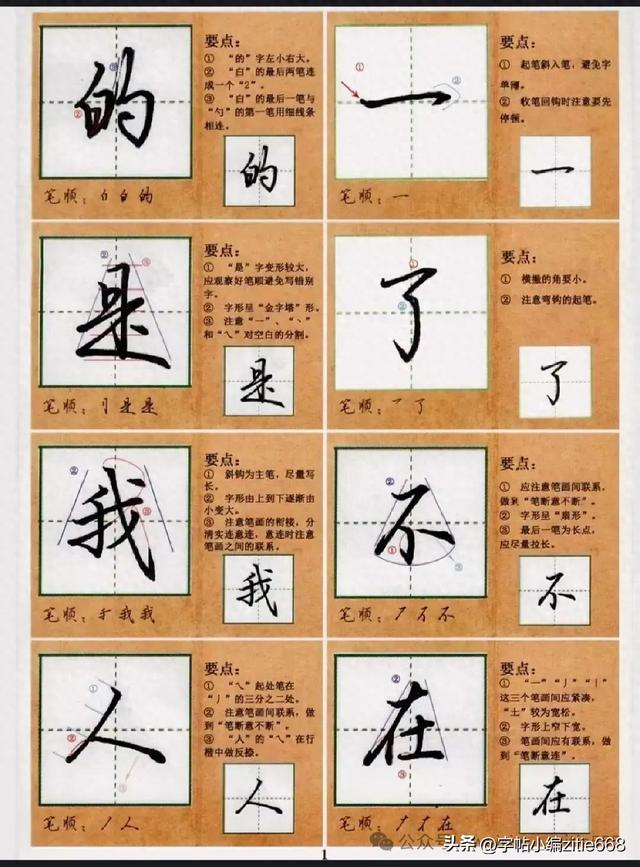 的
要点：
① “的”字左小右大。
② “白”的最后两笔连
成一个“2”。
③ “白”的最后一笔与
“勺”的第一笔用细线条
相连。
的
笔顺：白 的
一
要点：
① 起笔斜入笔，避免字
单薄。
② 收笔回钩时注意要先
停顿。
一
笔顺：一
是
要点：
① “是”字变形较大，
应观察好笔顺避免写错别
字。
② 字形呈“金字塔”形。
③ 注意“一”、“丶”
和“㇏”对空白的分割。
是
笔顺：是 是
了
要点：
① 横撇的角要小。
② 注意弯钩的起笔。
了
笔顺：乛 了
我
要点：
① 斜钩为主笔，尽量写
长。
② 字形由上到下逐渐由
小变大。
③ 注意笔画的衔接，分
清实连意连，意连时注意
笔画之间的联系。
我
笔顺：我 我
不
要点：
① 应注意笔画间联系，
做到“笔断意不断”。
② 字形呈“扇形”。
③ 最后一笔为长点，
应尽量拉长。
不
笔顺：丆 不 不
人
要点：
① “㇏”起处笔在
“丿”的三分之二处。
② 注意笔画间联系，做
到“笔断意不断”。
③ “人”的“㇏”在行
楷中做反捺。
人
笔顺：丿 人
在
要点：
① “一”“丿”“丨”
这三个笔画间应紧凑，
“土”较为宽松。
② 字形上窄下宽。
③ 笔画间应有联系，做
到“笔断意连”。
在
笔顺：𠂇 才 在
1
公众号
头条 @字帖小编zitie668